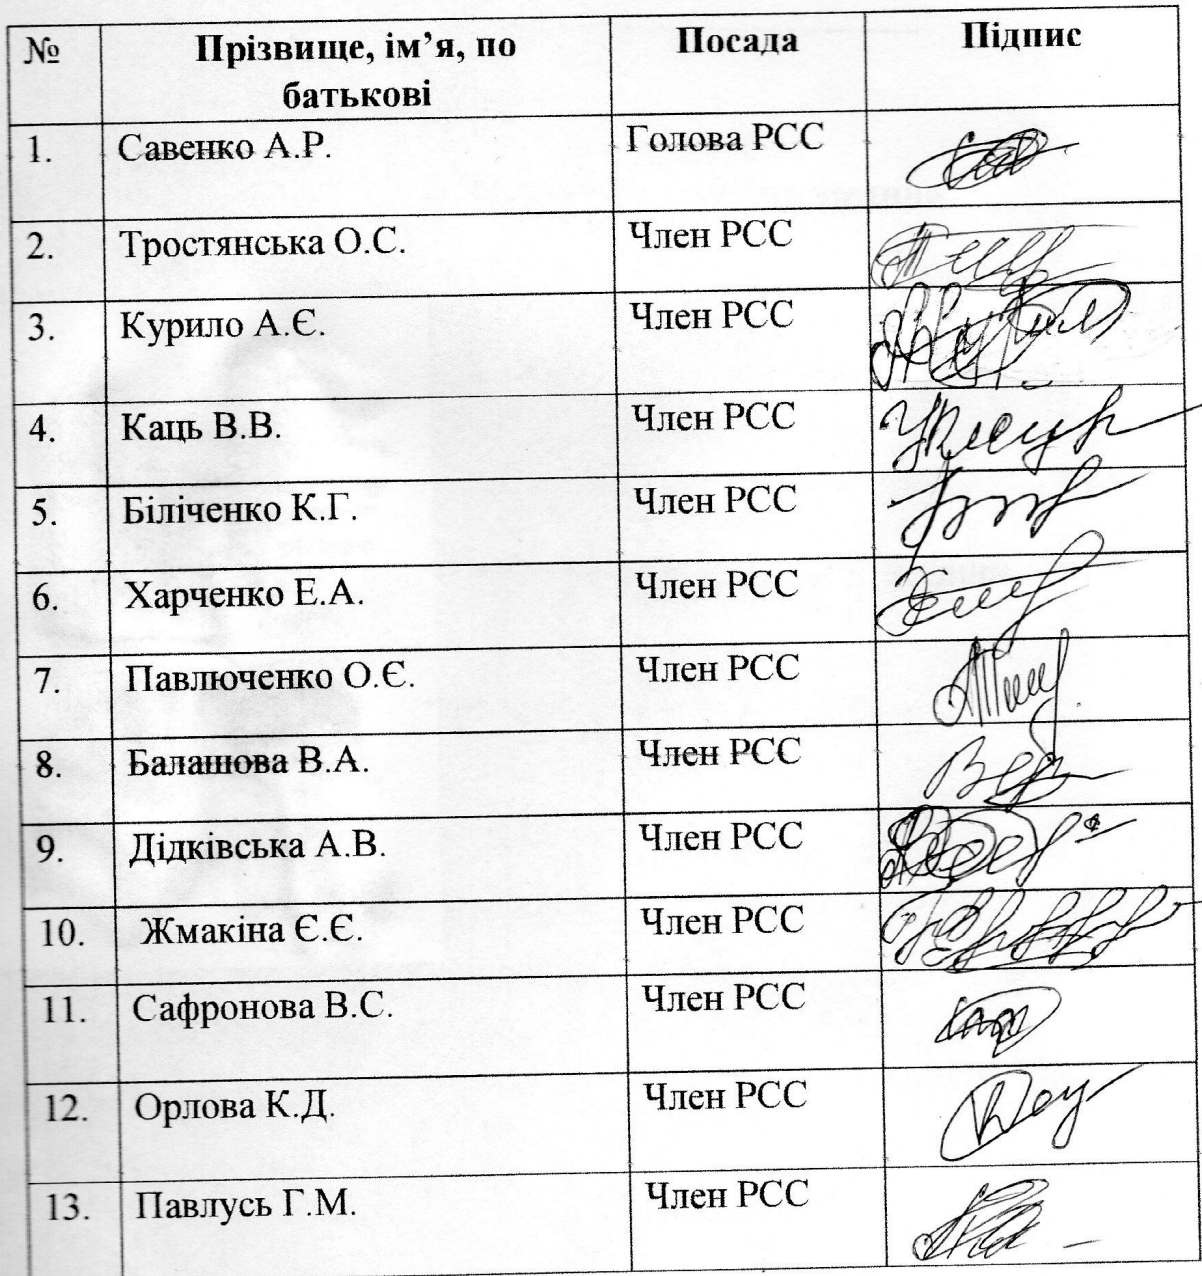 № Прізвище, ім’я, по батькові Посада Підпис
1. Савенко А.Р. Голова РСС
2. Тростянська О.С. Член РСС
3. Курило А.Є. Член РСС
4. Каць В.В. Член РСС
5. Біліченко К.Г. Член РСС
6. Харченко Е.А. Член РСС
7. Павлюченко О.Є. Член РСС
8. Балашова В.А. Член РСС
9. Дідківська А.В. Член РСС
10. Жмакіна Є.Є. Член РСС
11. Сафронова В.С. Член РСС
12. Орлова К.Д. Член РСС
13. Павлусь Г.М. Член РСС